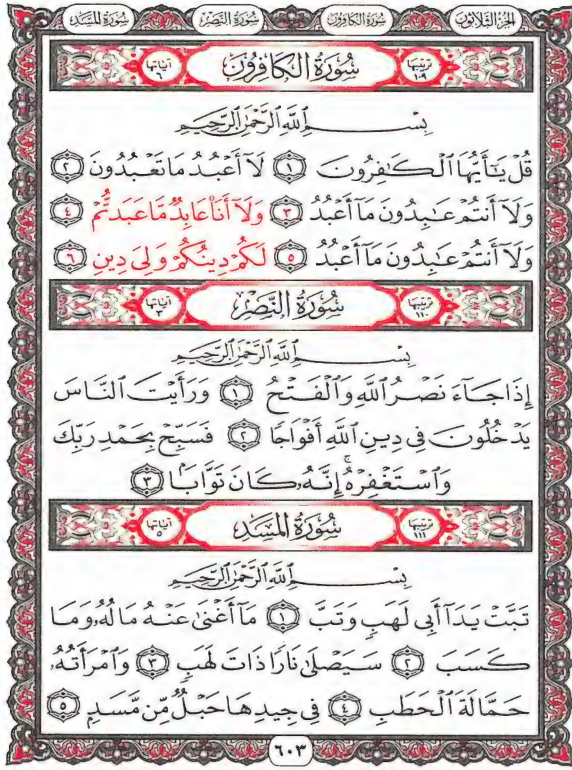 الجزء الثلاثون سورة الكافرون سورة النصر سورة المسد
ترتيبها ١٠٩ سُورَةُ الكَافِرُونَ آياتها ٦
بِسْمِ ٱللَّهِ ٱلرَّحْمَٰنِ ٱلرَّحِيمِ
قُلْ يَٰٓأَيُّهَا ٱلْكَٰفِرُونَ ١ لَآ أَعْبُدُ مَا تَعْبُدُونَ ٢
وَلَآ أَنتُمْ عَٰبِدُونَ مَآ أَعْبُدُ ٣ وَلَآ أَنَا۠ عَابِدٌ مَّا عَبَدتُّمْ ٤
وَلَآ أَنتُمْ عَٰبِدُونَ مَآ أَعْبُدُ ٥ لَكُمْ دِينُكُمْ وَلِيَ دِينِ ٦
ترتيبها ١١٠ سُورَةُ النَّصْرِ آياتها ٣
بِسْمِ ٱللَّهِ ٱلرَّحْمَٰنِ ٱلرَّحِيمِ
إِذَا جَآءَ نَصْرُ ٱللَّهِ وَٱلْفَتْحُ ١ وَرَأَيْتَ ٱلنَّاسَ
يَدْخُلُونَ فِي دِينِ ٱللَّهِ أَفْوَاجًا ٢ فَسَبِّحْ بِحَمْدِ رَبِّكَ
وَٱسْتَغْفِرْهُ ۚ إِنَّهُۥ كَانَ تَوَّابًۢا ٣
ترتيبها ١١١ سُورَةُ المَسَدِ آياتها ٥
بِسْمِ ٱللَّهِ ٱلرَّحْمَٰنِ ٱلرَّحِيمِ
تَبَّتْ يَدَآ أَبِي لَهَبٍ وَتَبَّ ١ مَآ أَغْنَىٰ عَنْهُ مَالُهُۥ وَمَا
كَسَبَ ٢ سَيَصْلَىٰ نَارًا ذَاتَ لَهَبٍ ٣ وَٱمْرَأَتُهُۥ
حَمَّالَةَ ٱلْحَطَبِ ٤ فِي جِيدِهَا حَبْلٌ مِّن مَّسَدٍۭ ٥
٦٠٣